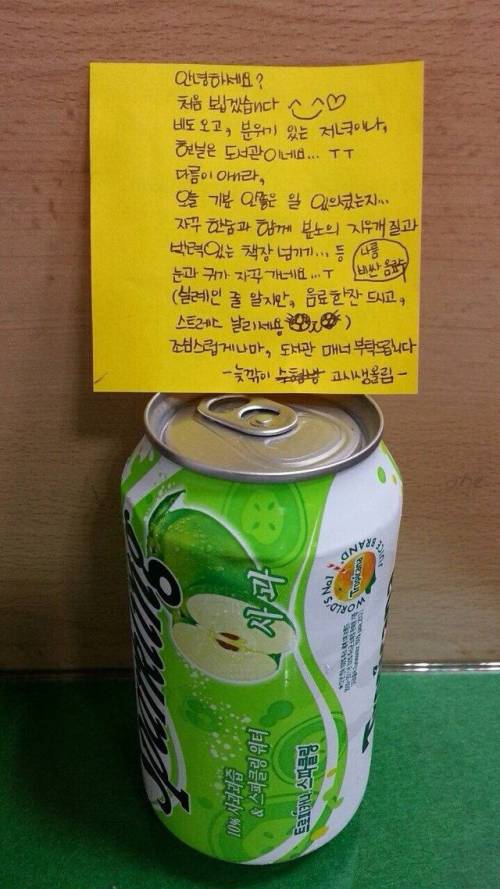 안녕하세요?
처음 뵙겠습니다 ^_^♡
비도 오고, 분위기 있는 저녁이나,
현실은 도서관이네요... ㅜㅜ
다름이 아니라,
오늘 기분 안좋은 일 있으셨는지...
자꾸 한숨과 함께 분노의 지우개질과
박력있는 책장 넘기기... 등
눈과 귀가 자꾸 가네요...ㅜ
나름
비싼 음료수
(실례인 줄 알지만, 음료한잔 드시고,
스트레스 날리세용)
조심스럽게나마, 도서관 매너 부탁드립니다
-늦깎이 수험생 고시생올림-
Sparkling
사과
10% 사과과즙
& 스파클링 워터
트로피카나 스파클링
WORLD'S No1 JUICE BRAND
Tropicana